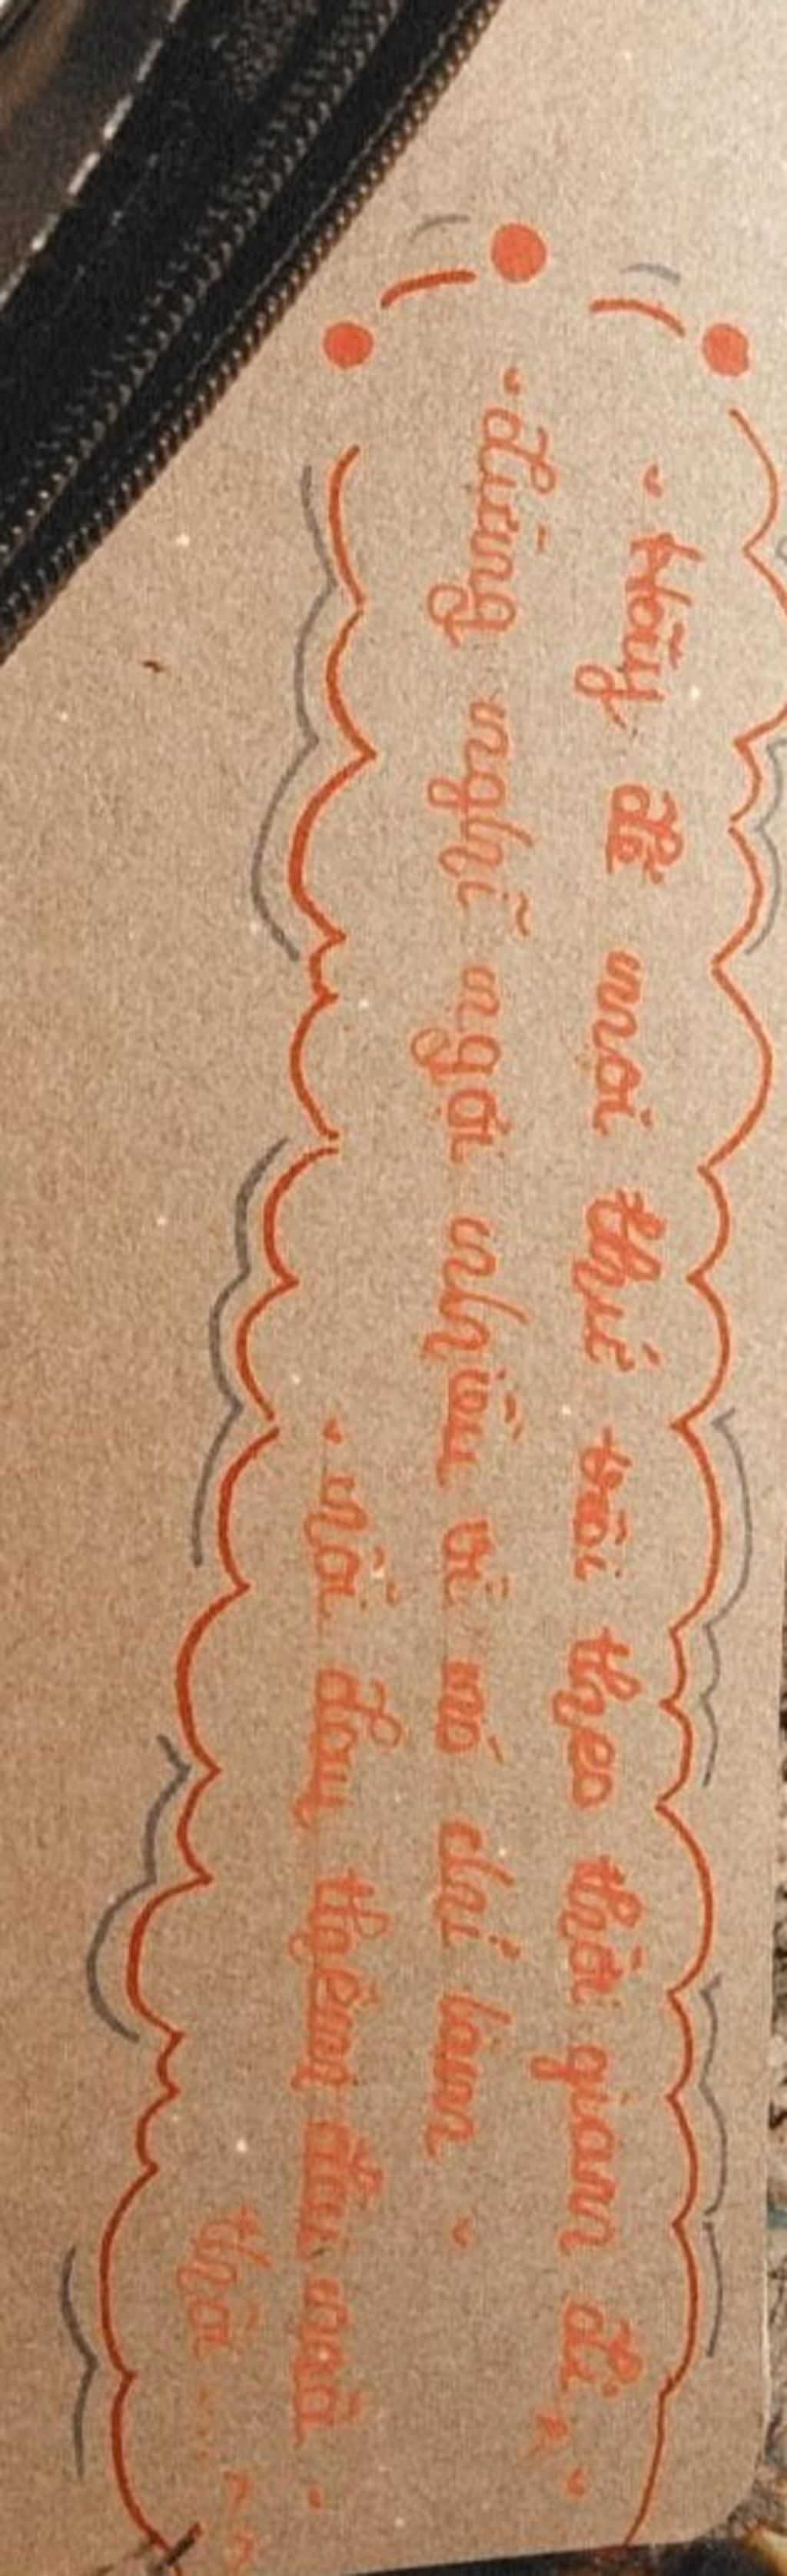 - Hãy để mọi thứ trôi theo thời gian đi
- đừng nghĩ ngợi nhiều vì nó chỉ làm -
- nỗi đau thêm đau mà -
thôi ...